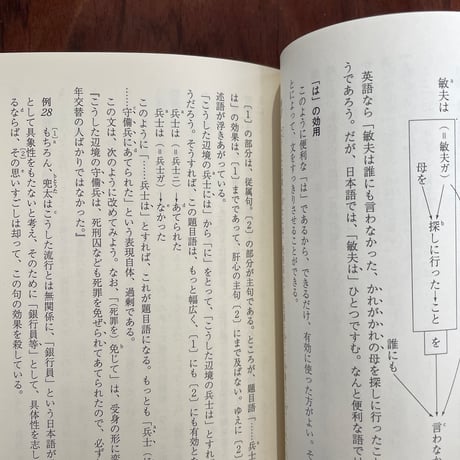 敏夫は(=敏夫が)
母を
探しに行った→こと
を
誰にも
言わなか
英語なら「敏夫は誰にも言わなかった、かれがかれの母を探しに行った
うであろう。だが、日本語では、「敏夫は」ひとつですむ。なんと便利な語では
「は」の効用
このように便利な「は」であるから、できるだけ、有効に使った方がよい。そ
とによって、文をすっきりさせることができる。
〔1〕の部分は、従属句。〔2〕の部分が主句である。ところが、題目語、「……
は」の効果は、〔1〕までであって、肝心の主句〔2〕にまで及ばない。ゆえに〔2〕
述語が浮きあがっている。
「こうした辺境の兵士には」から「に」をとって、「こうした辺境の兵士は」とすれ
うだろう。そうすれば、この題目語は、もっと幅広く、〔1〕にも〔2〕にも有効と
兵士は(=兵士に)→あてられた
兵士は(=兵士が)→なかった
このように「……兵士は」とすれば、これが題目語になる。もっとも「兵士(
……守備兵にあてられた」という表現自体、過剰である。
この文は、次のように改めてみよう。なお、「(死罪を)免じて」は、受身の形に変
『こうした辺境の守備兵は、死刑囚なども死罪を免ぜられてあてられたので、必ず
年交替の人ばかりではなかった。』
例28
〔1〕もちろん、兜太はこうした流行とは無関係に、「銀行員」という日本語が
として具象性をもたないと考え、そのために「銀行員等」として、具体性を志し
るならば、その思いすごしは却って、この句の効果を殺している。